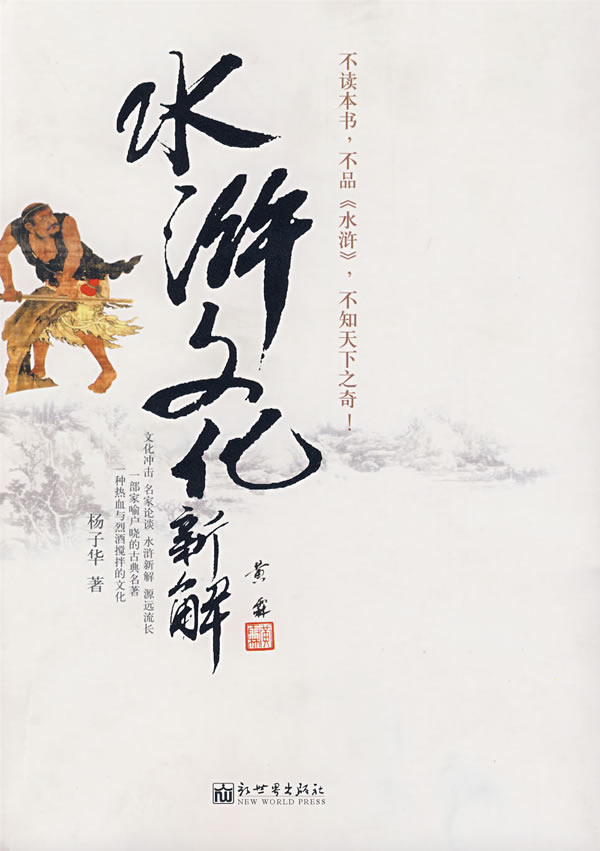 不读本书，不品《水浒》，不知天下之奇！
水浒文化
新解
黄霖
黄霖
文化冲击 名家论谈 水浒新解 源远流长
一部家喻户晓的古典名著
一种热血与烈酒搅拌的文化
杨子华 著
新世界出版社
NEW WORLD PRESS